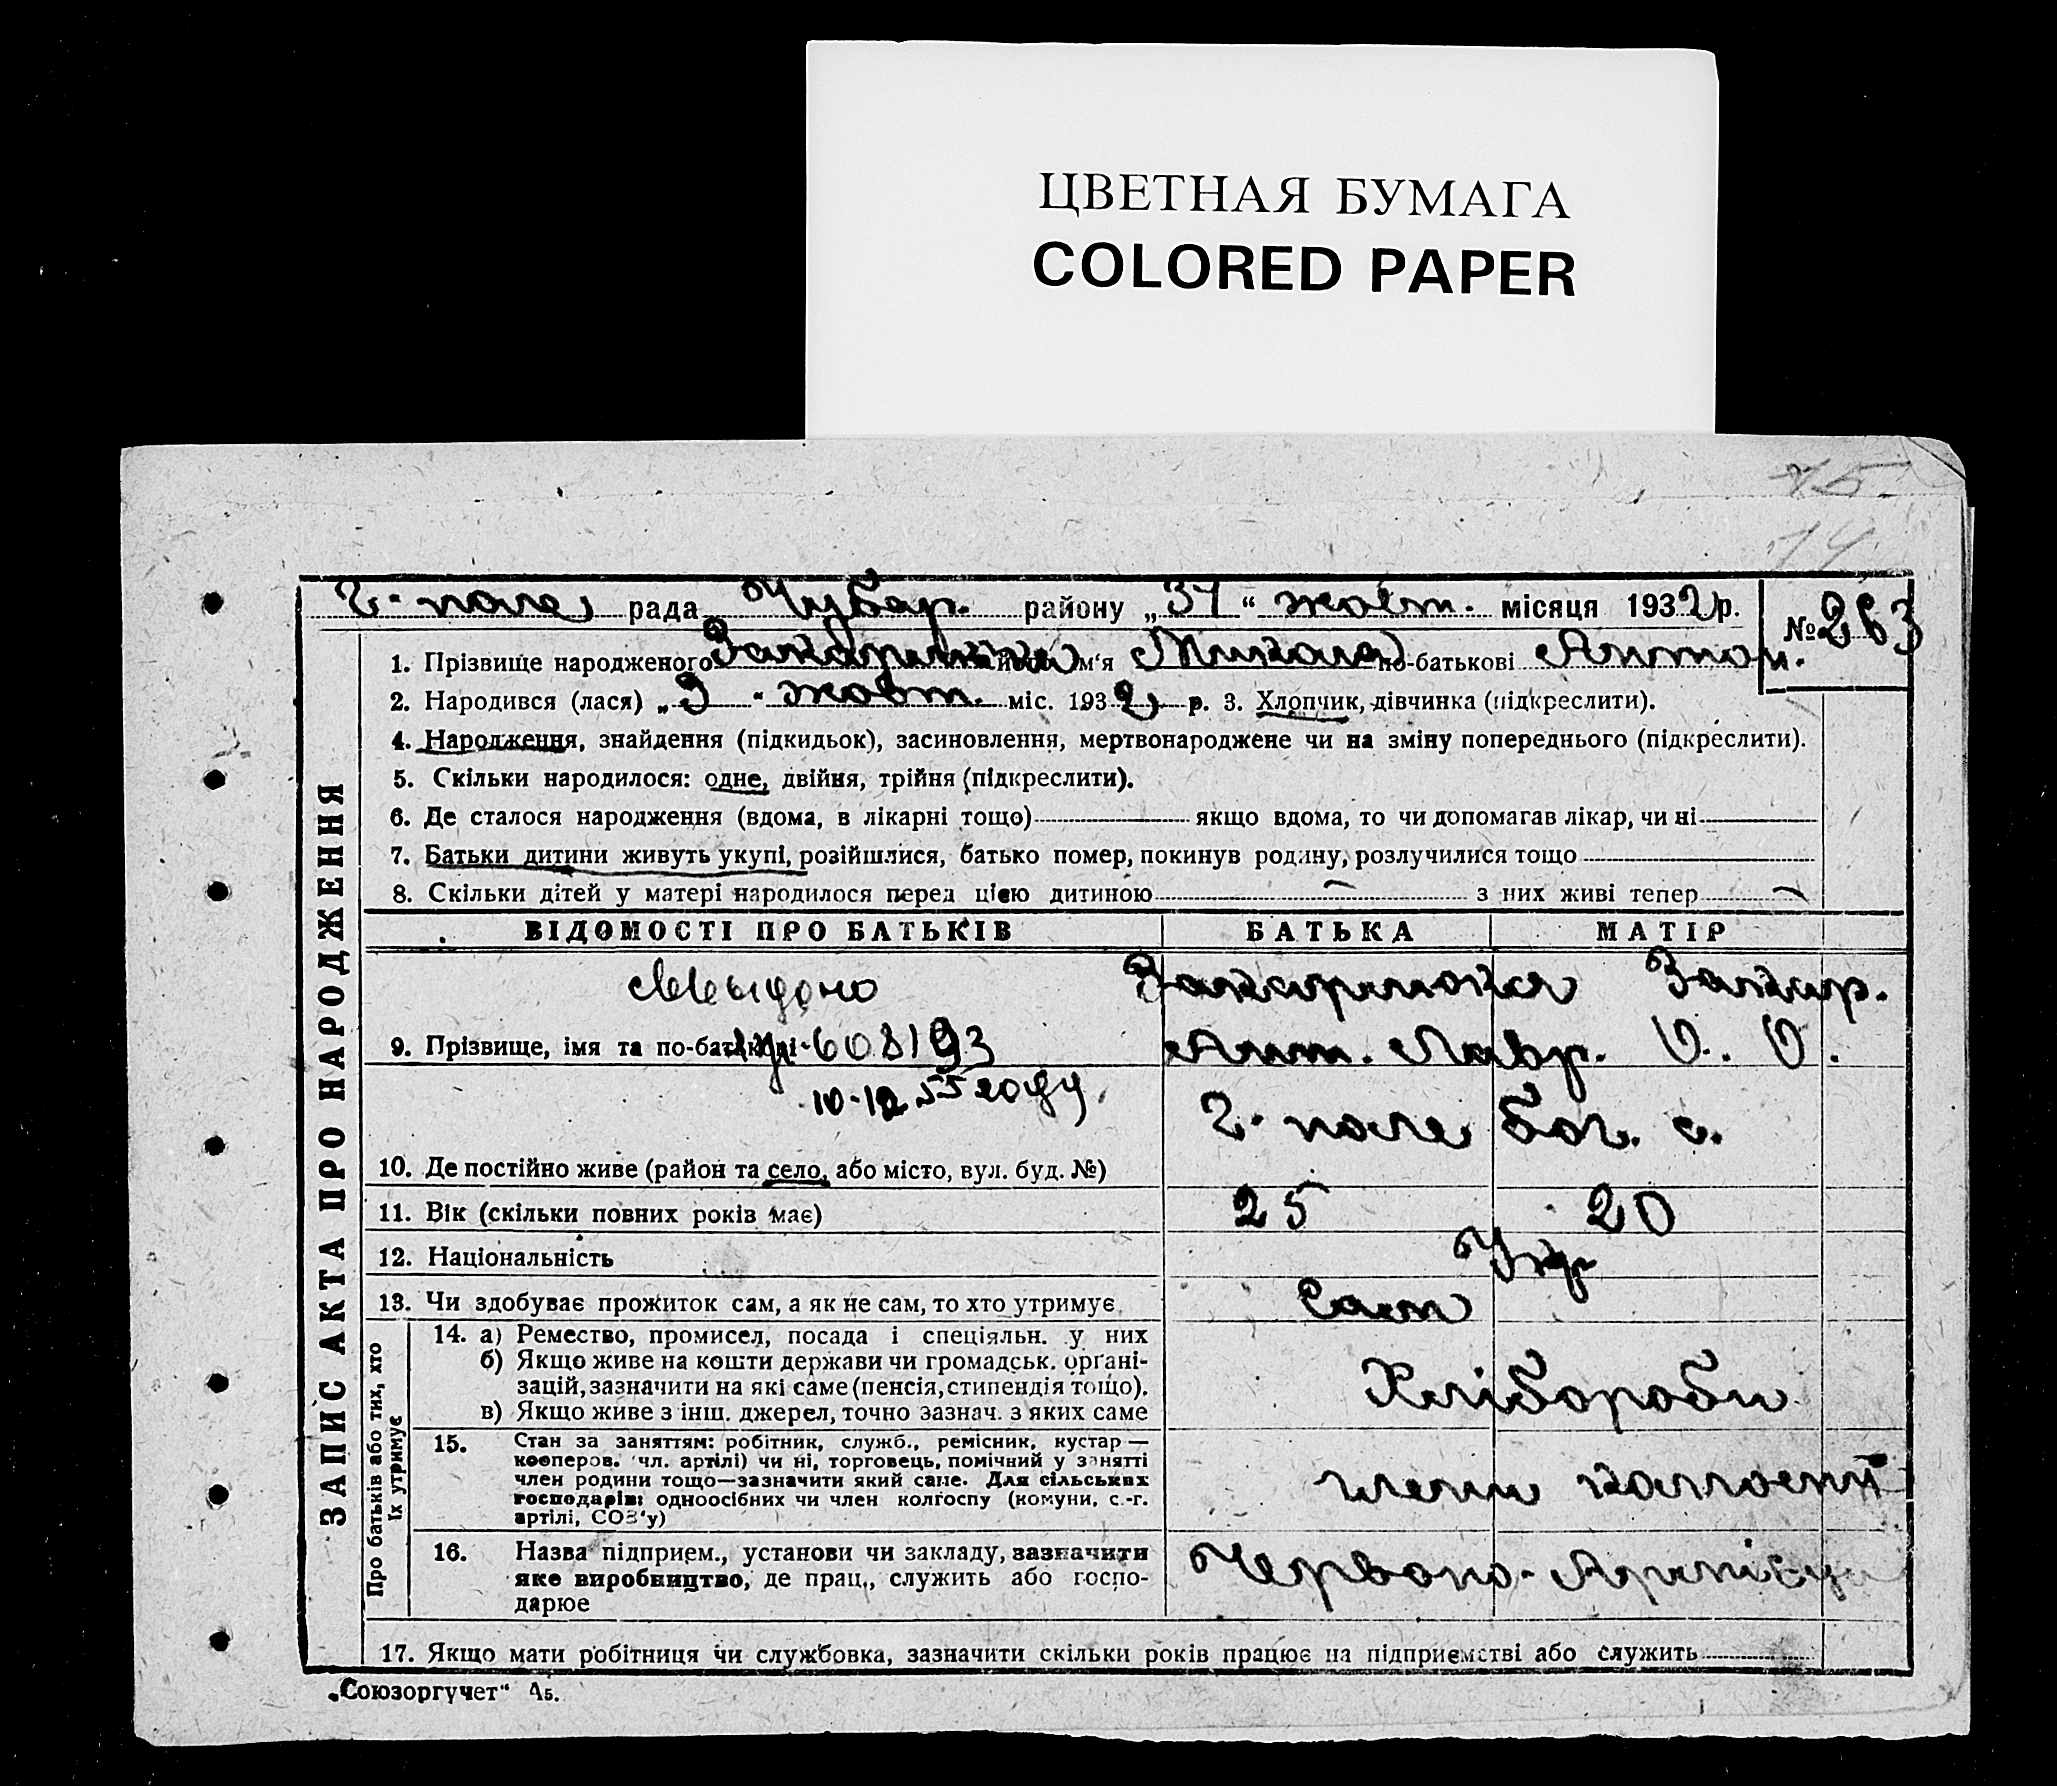 ЦВЕТНАЯ БУМАГА
COLORED PAPER
75.
74.
Г. поле рада Чубар. району „31“ жовт. місяця 1932 р. № 263
1. Прізвище народженого м‘я Микола по-батькові Антон.
2. Народився (лася) „3“ жовт. міс. 1932 р. 3. Хлопчик, дівчинка (підкреслити).
4. Народження, знайдення (підкидьок), засиновлення, мертвонароджене чи на зміну попереднього (підкреслити).
5. Скільки народилося: одне, двійня, трійня (підкреслити).
6. Де сталося народження (вдома, в лікарні тощо) якщо вдома, то чи допомагав лікар, чи ні
7. Батьки дитини живуть укупі, розійшлися, батько помер, покинув родину, розлучилися тощо
8. Скільки дітей у матері народилося перед цією дитиною — з них живі тепер —
ЗАПИС АКТА ПРО НАРОДЖЕННЯ
ВІДОМОСТІ ПРО БАТЬКІВ БАТЬКА МАТІР
Захар.
9. Прізвище, імя та по-батькові 608193 Ант. Лавр. О. О.
10-12 55 году. Г. поле Бог. с.
10. Де постійно живе (район та село, або місто, вул. буд. №)
11. Вік (скільки повних років має) 25 20
12. Національність Укр
13. Чи здобуває прожиток сам, а як не сам, то хто утримує Сам
Про батьків або тих, хто їх утримує
14. а) Ремество, промисел, посада і спеціяльн. у них
б) Якщо живе на кошти держави чи громадськ. органі-
зацій, зазначити на які саме (пенсія, стипендія тощо).
в) Якщо живе з інш. джерел, точно зазнач. з яких саме
Хлібороби
15. Стан за заняттям: робітник, служб., ремісник, кустар —
кооперов. чл. артілі) чи ні, торговець, помічний у занятті
член родини тощо—зазначити який саме. Для сільських
господарів: одноосібних чи член колгоспу (комуни, с.-г.
артілі, СОЗ‘у)
члени
16. Назва підприєм., установи чи закладу, зазначити
яке виробництво, де прац., служить або госпо-
дарюе
Червоно-
17. Якщо мати робітниця чи службовка, зазначити скільки років працює на підприємстві або служить
„Союзоргучет“ А5.